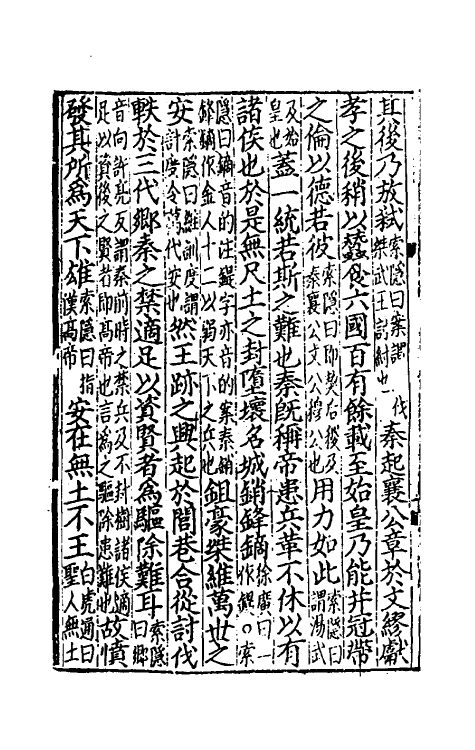 其後乃放弒索隱曰案謂伐桀武王討紂也秦起襄公章於文繆獻
孝之後稍以蠶食六國百有餘載至始皇乃能并冠帶
之倫以德若彼索隱曰即契后稷及秦襄公文公穆公也用力如此索隱曰謂湯武
及始皇也蓋一統若斯之難也秦既稱帝患兵革不休以有
諸侯也於是無尺土之封墮壞名城銷鋒鏑徐廣曰一作鍉○索
隱曰鏑音的注鍉字亦音的案秦銷鋒鏑作金人十二以弱天下之兵也鉏豪桀維萬世之
安索隱曰維訓度謂計度令萬代安也然王跡之興起於閭巷合從討伐
軼於三代鄉秦之禁適足以資賢者為驅除難耳索隱曰鄉
音向許亮反謂秦前時之禁兵及不封樹諸侯適足以資後之賢者即高帝也言為之驅除患難也故憤
發其所為天下雄索隱曰指漢高帝安在無土不王白虎通曰聖人無土